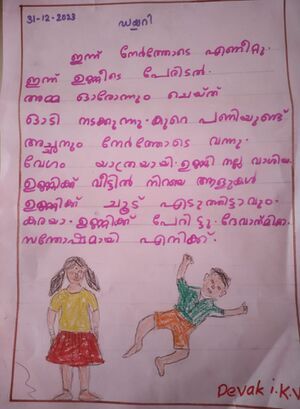 31-12-2023
ഡയറി
ഇന്ന് നേർത്തോടെ എണീറ്റു.
ഇന്ന് ഉണ്ണീടെ പേരിടൽ.
അമ്മ ഓരോന്നും ചെയ്ത്
ഓടി നടക്കുന്നു. കുറെ പണിയുണ്ട്
അച്ഛനും നേർത്തോടെ വന്നു.
വേഗം യാത്രയായി. ഉണ്ണി നല്ല വാശിയ.
ഉണ്ണിക്ക് വീട്ടിൽ നിറയെ ആളുകൾ
ഉണ്ണിക്ക് ചൂട് എടുത്തിട്ടാവും.
കരയാ. ഉണ്ണിക്ക് പേരിട്ടു. ദേവാന്മിക.
സന്തോഷമായി എനിക്ക്.
Devak i.K.V